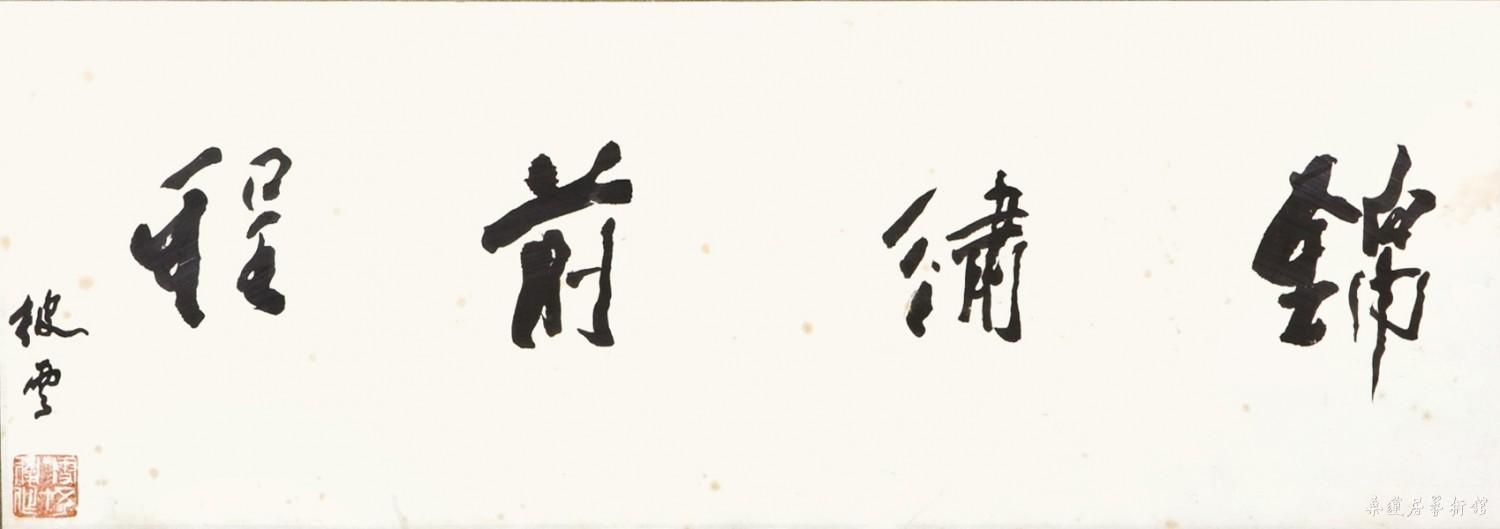 錦繡前程
披雲
桑蓮居藝術館